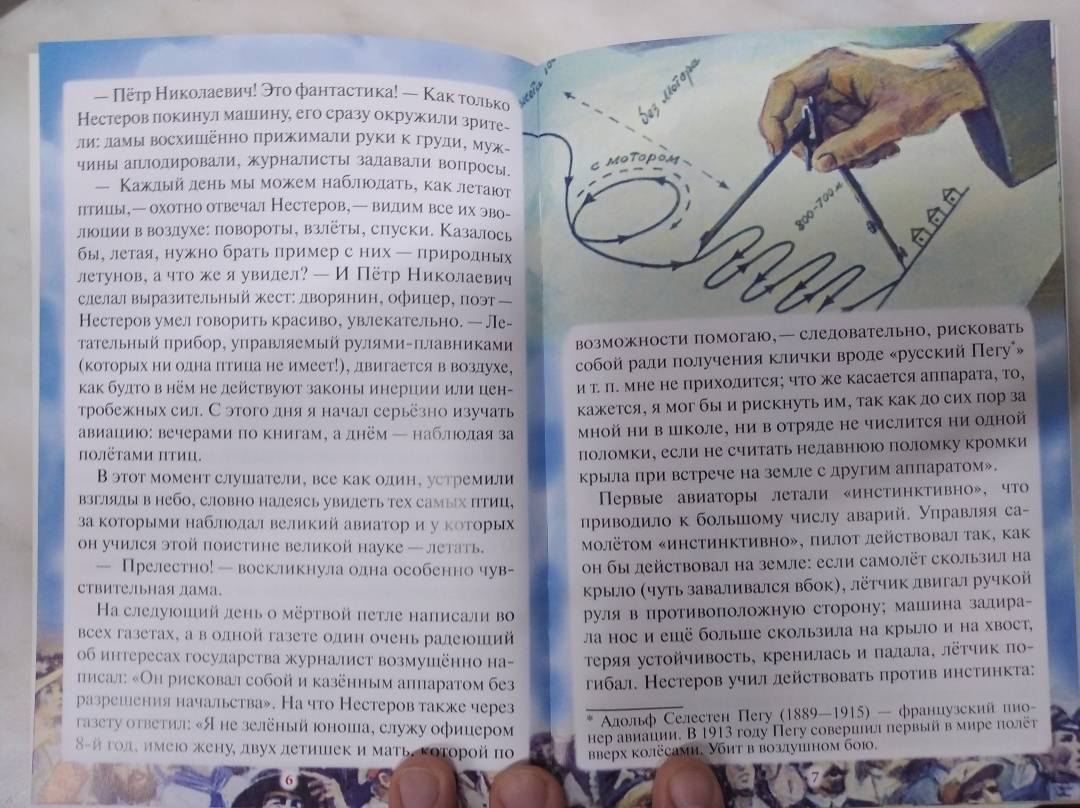 — Пётр Николаевич! Это фантастика! — Как только
Нестеров покинул машину, его сразу окружили зрите-
ли: дамы восхищённо прижимали руки к груди, муж-
чины аплодировали, журналисты задавали вопросы.
— Каждый день мы можем наблюдать, как летают
птицы,— охотно отвечал Нестеров,— видим все их эво-
люции в воздухе: повороты, взлёты, спуски. Казалось
бы, летая, нужно брать пример с них — природных
летунов, а что же я увидел? — И Пётр Николаевич
сделал выразительный жест: дворянин, офицер, поэт —
Нестеров умел говорить красиво, увлекательно. — Ле-
тательный прибор, управляемый рулями-плавниками
(которых ни одна птица не имеет!), двигается в воздухе,
как будто в нём не действуют законы инерции или цен-
тробежных сил. С этого дня я начал серьёзно изучать
авиацию: вечерами по книгам, а днём — наблюдая за
полётами птиц.
В этот момент слушатели, все как один, устремили
взгляды в небо, словно надеясь увидеть тех самых птиц,
за которыми наблюдал великий авиатор и у которых
он учился этой поистине великой науке — летать.
— Прелестно! — воскликнула одна особенно чув-
ствительная дама.
На следующий день о мёртвой петле написали во
всех газетах, а в одной газете один очень радеющий
об интересах государства журналист возмущённо на-
писал: «Он рисковал собой и казённым аппаратом без
разрешения начальства». На что Нестеров также через
газету ответил: «Я не зелёный юноша, служу офицером
8-й год, имею жену, двух детишек и мать, которой по
6
без мотора
с мотором
800-700 м
возможности помогаю,— следовательно, рисковать
собой ради получения клички вроде «русский Пегу*»
и т. п. мне не приходится; что же касается аппарата, то,
кажется, я мог бы и рискнуть им, так как до сих пор за
мной ни в школе, ни в отряде не числится ни одной
поломки, если не считать недавнюю поломку кромки
крыла при встрече на земле с другим аппаратом».
Первые авиаторы летали «инстинктивно», что
приводило к большому числу аварий. Управляя са-
молётом «инстинктивно», пилот действовал так, как
он бы действовал на земле: если самолёт скользил на
крыло (чуть заваливался вбок), лётчик двигал ручкой
руля в противоположную сторону; машина задира-
ла нос и ещё больше скользила на крыло и на хвост,
теряя устойчивость, кренилась и падала, лётчик по-
гибал. Нестеров учил действовать против инстинкта:
* Адольф Селестен Пегу (1889—1915) — французский пио-
нер авиации. В 1913 году Пегу совершил первый в мире полёт
вверх колёсами. Убит в воздушном бою.
7